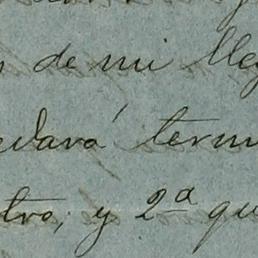 de mi lleg
edará term
tro, y 2ª qu